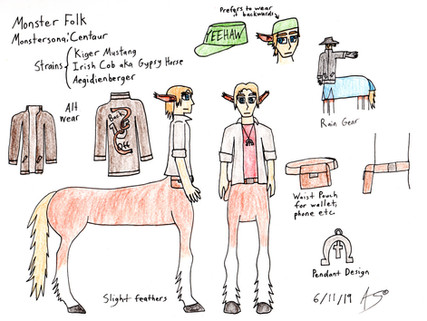 Monster Folk
Monstersona: Centaur
Strains { Kiger Mustang
Irish Cob aka Gypsy Horse
Aegidienberger
Prefers to wear
backwards
YEEHAW
Alt
wear
Back
Off
Rain Gear
Waist Pouch
for wallet,
phone etc.
Pendant Design
Slight feathers
6/11/19